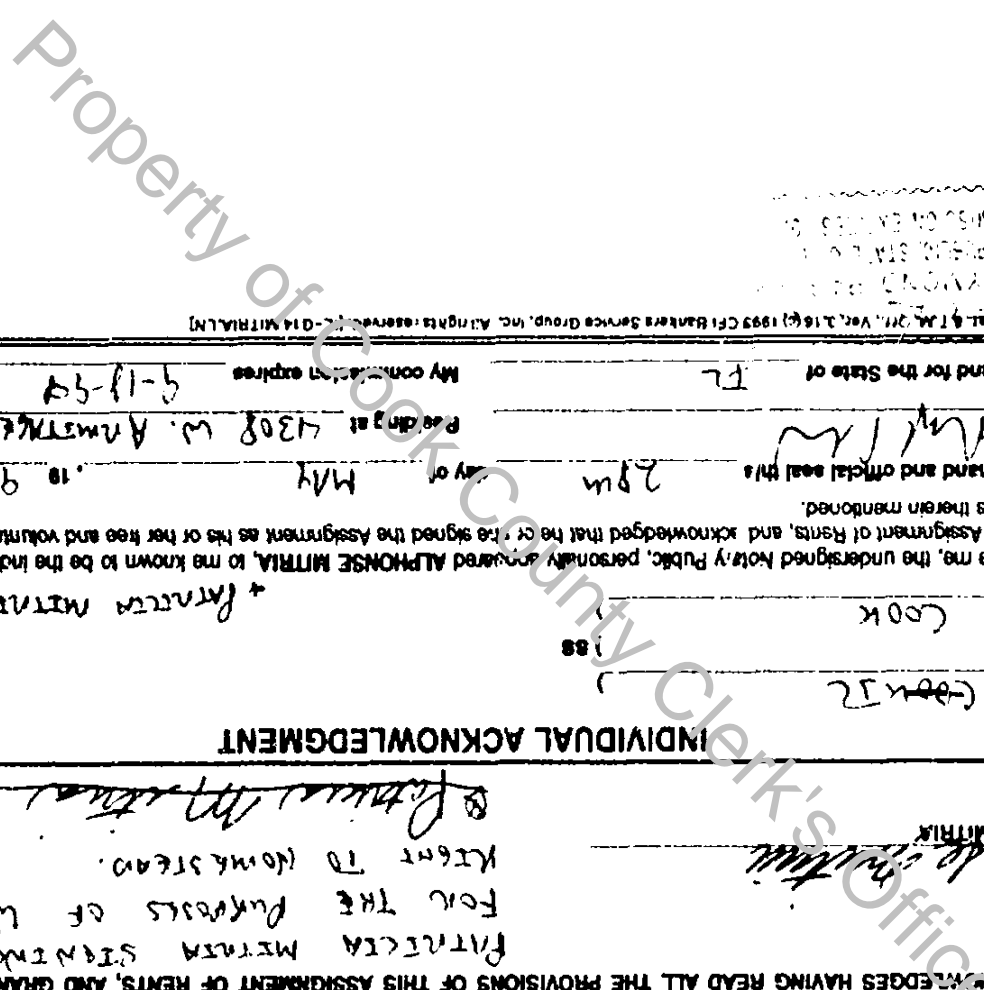 LEDGES HAVING READ ALL THE PROVISIONS OF THIS ASSIGNMENT OF RENTS, AND GRAN
PATRICIA MITRIA SIGNING
FOR THE PURPOSES OF
RIGHT TO HOMESTEAD.
MITRIA
Patricia Mitria
INDIVIDUAL ACKNOWLEDGMENT
IL
) SS
COOK )
+ PATRICIA MITRI
me, the undersigned Notary Public, personally appeared ALPHONSE MITRIA, to me known to be the ind
Assignment of Rents, and acknowledged that he or she signed the Assignment as his or her free and volunta
therein mentioned.
hand and official seal this 28th day of MAY , 19 9
Residing at 4308 W. ARMITAGE
and for the State of IL My commission expires
Ver. 3.16 (c) 1993 CFI Bankers Service Group, Inc. All rights reserved. G14 MITRIA.LN]
Property of Cook County Clerk's Office